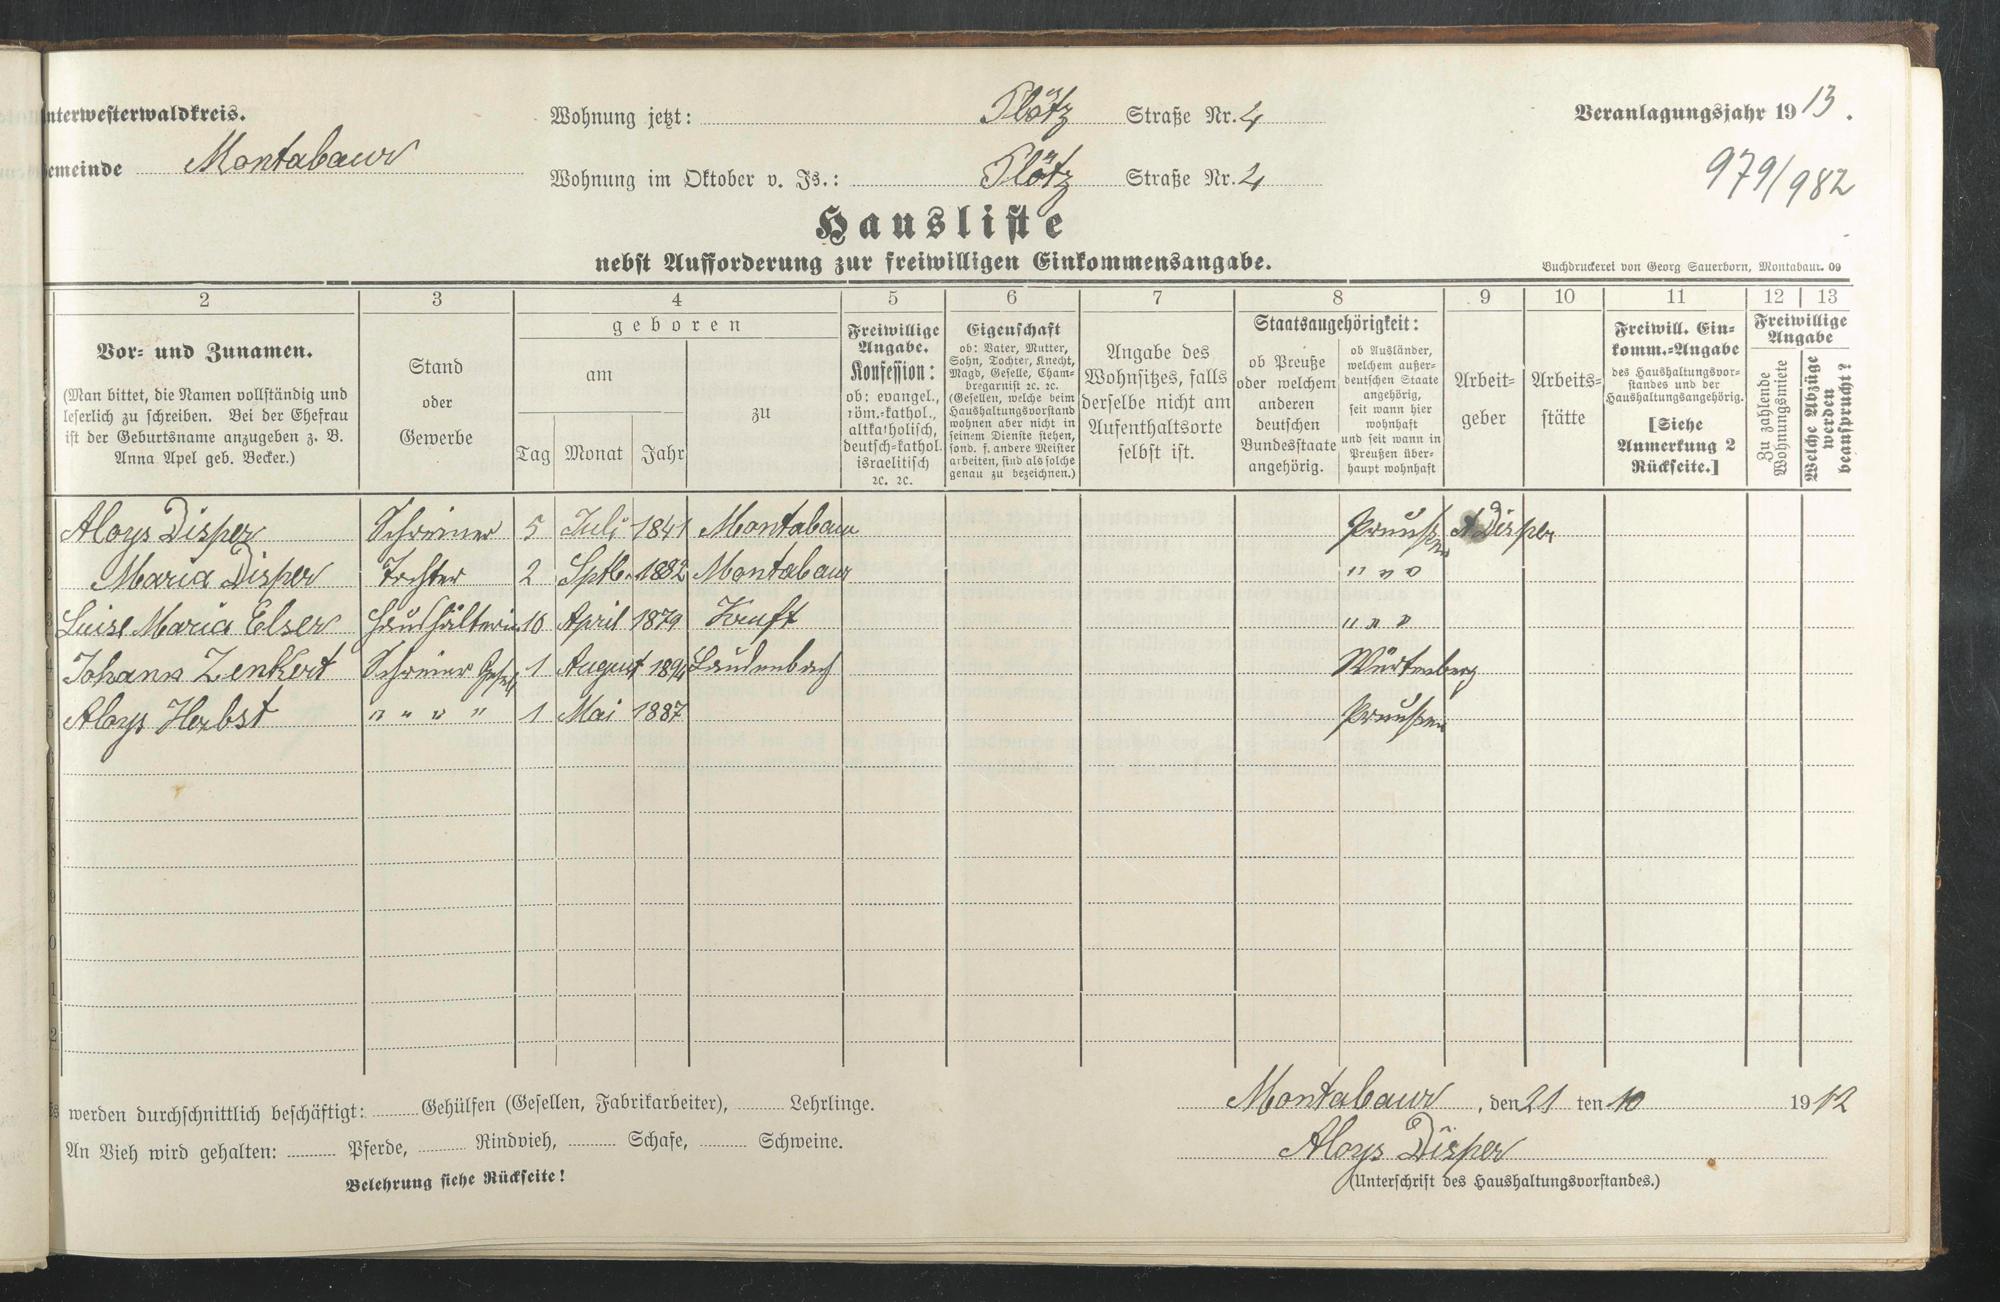 nterwesterwaldkreis.
Wohnung jetzt: Plötz Straße Nr. 4
Veranlagungsjahr 1913.
emeinde Montabaur
Wohnung im Oktober v. Js.: Plötz Straße Nr. 4
979/982
Hausliste
nebst Aufforderung zur freiwilligen Einkommensangabe.
Buchdruckerei von Georg Sauerborn, Montabaur. 09
2 3 4 5 6 7 8 9 10 11 12 13
Vor- und Zunamen.
(Man bittet, die Namen vollständig und
leserlich zu schreiben. Bei der Ehefrau
ist der Geburtsname anzugeben z. B.
Anna Apel geb. Becker.)
Stand
oder
Gewerbe
geboren
am
zu
Tag Monat Jahr
Freiwillige
Angabe.
Konfession:
ob: evangel.,
röm.-kathol.,
altkatholisch,
deutsch-kathol.
israelitisch
2c. 2c.
Eigenschaft
ob: Vater, Mutter,
Sohn, Tochter, Knecht,
Magd, Geselle, Cham-
bregarnist 2c. 2c.
(Gesellen, welche beim
Haushaltungsvorstand
wohnen aber nicht in
seinem Dienste stehen,
sond. f. andere Meister
arbeiten, sind als solche
genau zu bezeichnen.)
Angabe des
Wohnsitzes, falls
derselbe nicht am
Aufenthaltsorte
selbst ist.
Staatsangehörigkeit:
ob Preuße
oder welchem
anderen
deutschen
Bundesstaate
angehörig.
ob Ausländer,
welchem außer-
deutschen Staate
angehörig,
seit wann hier
wohnhaft
und seit wann in
Preußen über-
haupt wohnhaft
Arbeit-
geber
Arbeits-
stätte
Freiwill. Ein-
komm.-Angabe
des Haushaltungsvor-
standes und der
Haushaltungsangehörig.
[Siehe
Anmerkung 2
Rückseite.]
Freiwillige
Angabe
Zu zahlende
Wohnungsmiete
Welche Abzüge
werden
gewünscht?
1 Aloys Disper Schreiner 5 Juli 1841 Montabaur Preußen A Disper
2 Maria Disper Tochter 2 Sptb. 1882 Montabaur " " "
3 Luise Maria Elser Haushälterin 10 April 1879 " " "
4 Johann Zenkert Schreiner Gesell 1 August 1894 Laudenbach Würtenberg
5 Aloys Herbst " " " " 1 Mai 1887 Preußen
6
7
8
9
0
1
2
Es werden durchschnittlich beschäftigt: Gehülfen (Gesellen, Fabrikarbeiter), Lehrlinge.
Montabaur, den 21 ten 10 1912
An Vieh wird gehalten: Pferde, Rindvieh, Schafe, Schweine.
Aloys Disper
Belehrung siehe Rückseite!
(Unterschrift des Haushaltungsvorstandes.)